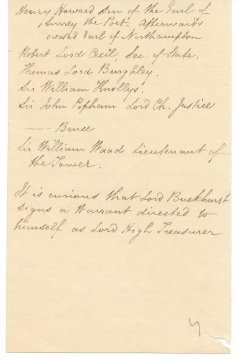 Henry Howard Son of the Earl of
Surrey the Poet. Afterwards
created Earl of Northampton
Robert Lord Cecil, Sec. of State.
Thomas Lord Burghley.
Sir William Knollys.
Sir John Popham Lord Ch. Justice
—— Bruce
Sir William Waad Lieutenant of
the Tower.
It is curious that Lord Buckhurst
signs a Warrant directed to
himself as Lord High Treasurer